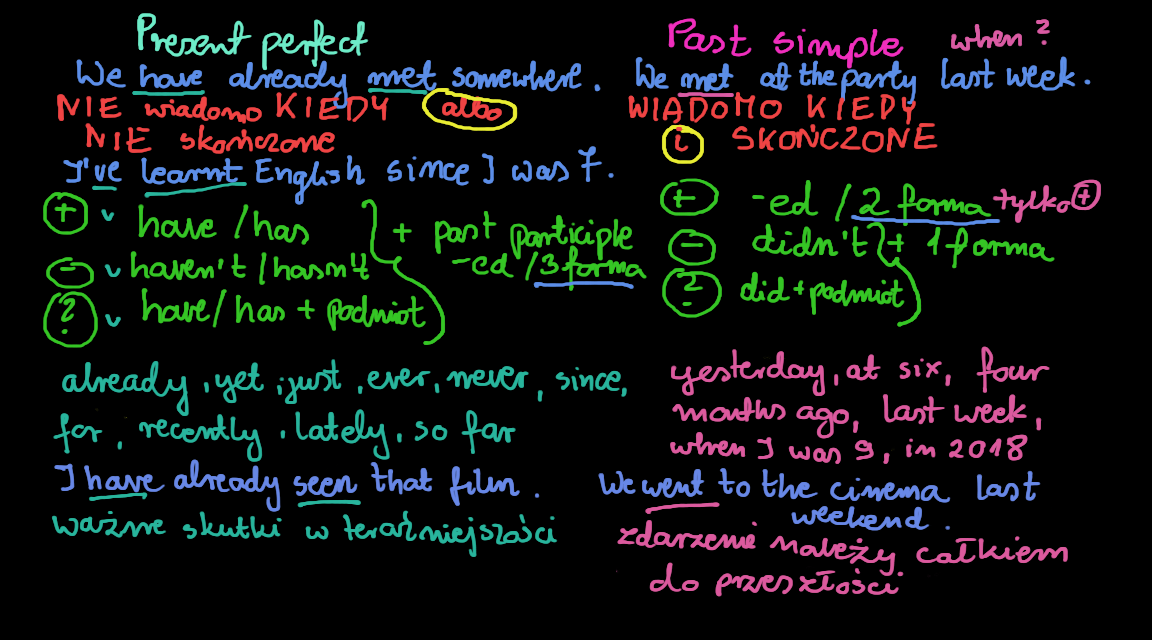 Present perfect
We have already met somewhere.
NIE wiadomo KIEDY albo
NIE skończone
I've learnt English since I was 7.
+ v have / has
- v haven't / hasn't
? v have / has + podmiot
+ past participle
-ed / 3 forma
already, yet, just, ever, never, since,
for, recently, lately, so far
I have already seen that film.
ważne skutki w teraźniejszości
Past simple when?
We met at the party last week.
WIADOMO KIEDY
i SKOŃCZONE
+ -ed / 2 forma tylko +
- didn't + 1 forma
? did + podmiot
yesterday, at six, four
months ago, last week,
when I was 9, in 2018
We went to the cinema last
weekend.
zdarzenie należy całkiem
do przeszłości